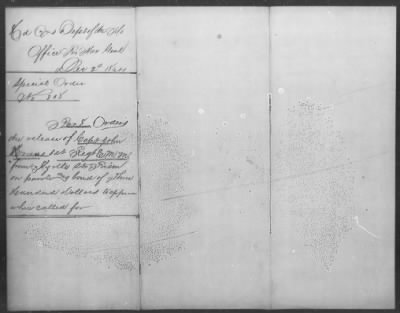 Hd Qrs Dept of the Mo
Office Pro Mar Genl
Dec 2d
Special Order
No 308
Par 8 Orders
the release of Capt John
1st Regt E M M
from Myrtle St Prison
on parole & bond of Three
Hundred dollars to appear
when called for